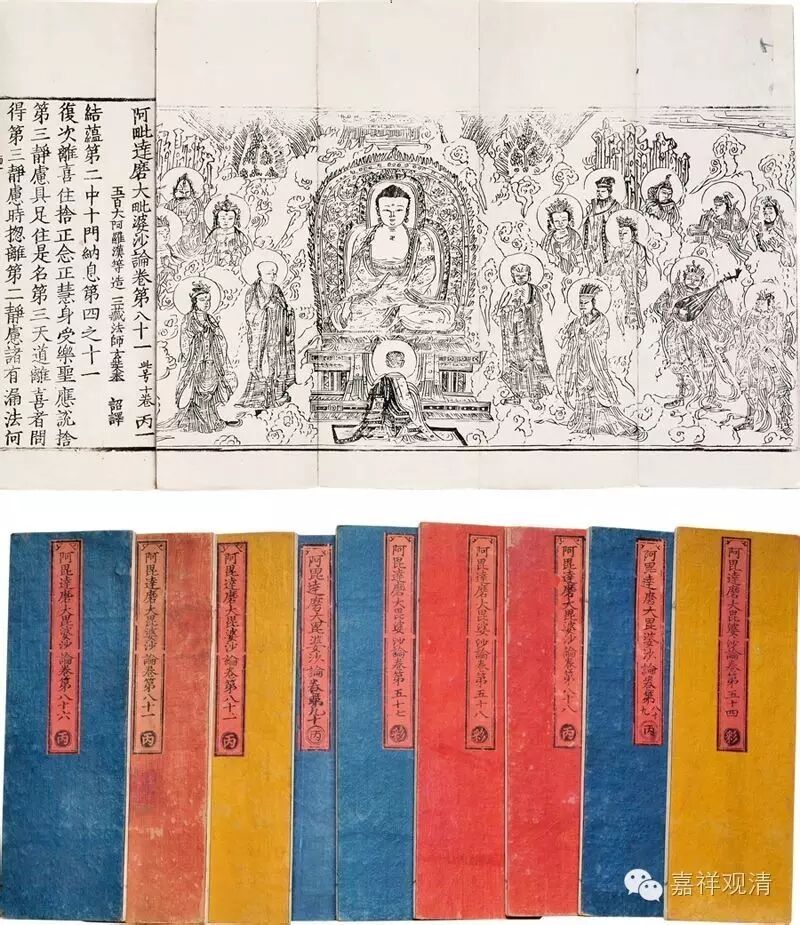 阿毗達磨大毗婆沙論卷第八十一 此号十卷 丙一
五百大阿羅漢等造 三藏法師玄奘奉 詔譯
結蘊第二中十門納息第四之十一
復次離喜住捨正念正慧身受樂聖應說捨
第三靜慮具足住是名第三天道離喜者問
得第三靜慮時捴離第二靜慮諸有漏法何
阿毘達磨大毘婆沙論卷第五十四 彩
阿毘達磨大毘婆沙論卷第八十九 丙
阿毘達磨大毘婆沙論卷第八十八 丙
阿毘達磨大毘婆沙論卷第五十八 彩
阿毘達磨大毘婆沙論卷第五十七 彩
阿毘達磨大毘婆沙論卷第九十 丙
阿毘達磨大毘婆沙論卷第八十一 丙
阿毘達磨大毘婆沙論卷第八十一 丙
阿毘達磨大毘婆沙論卷第八十六 丙
嘉祥观清